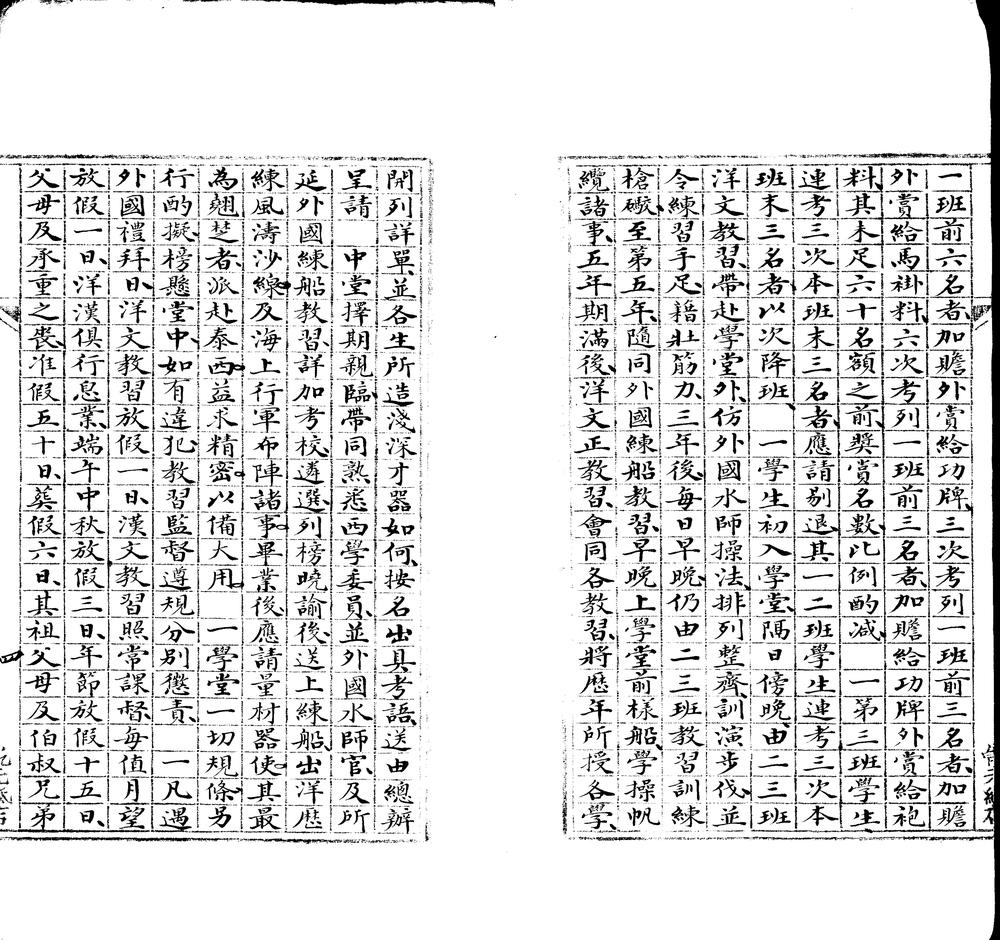 一班前六名者、加贍外賞給功牌、三次考列一班前三名者、加贍
外賞給馬褂料、六次考列一班前三名者、加贍給功牌外賞給袍
料、其未足六十名額之前、獎賞名數、比例酌減、　一第三班學生
連考三次本班末三名者、應請剔退、其一二班學生連考三次本
班末三名者、以次降班、　一學生初入學堂、隔日傍晚、由二三班
洋文教習、帶赴學堂外、仿外國水師操法、排列整齊、訓演步伐、並
令練習手足、藉壯筋力、三年後、每日早晚、仍由二三班教習訓練
槍礮、至第五年、隨同外國練船教習、早晚上學堂前樣船、學操帆
纜諸事、五年期滿後、洋文正教習、會同各教習、將歷年所授各學、
開列詳單、並各生所造淺深才器如何、按名出具考語、送由總辦
呈請　中堂擇期親臨、帶同熟悉西學委員、並外國水師官、及所
延外國練船教習、詳加考校、遴選列榜曉諭後、送上練船、出洋歷
練風濤沙線、及海上行軍布陣諸事、畢業後、應請量材器使、其最
為翹楚者、派赴泰西、益求精密、以備大用、　一學堂一切規條、另
行酌擬、榜懸堂中、如有違犯、教習監督遵規分別懲責、　一凡遇
外國禮拜日、洋文教習放假一日、漢文教習照常課督、每值月望
放假一日、洋漢俱行息業、端午中秋放假三日、年節放假十五日、
父母及承重之喪、准假五十日、葬假六日、其祖父母及伯叔兄弟
四